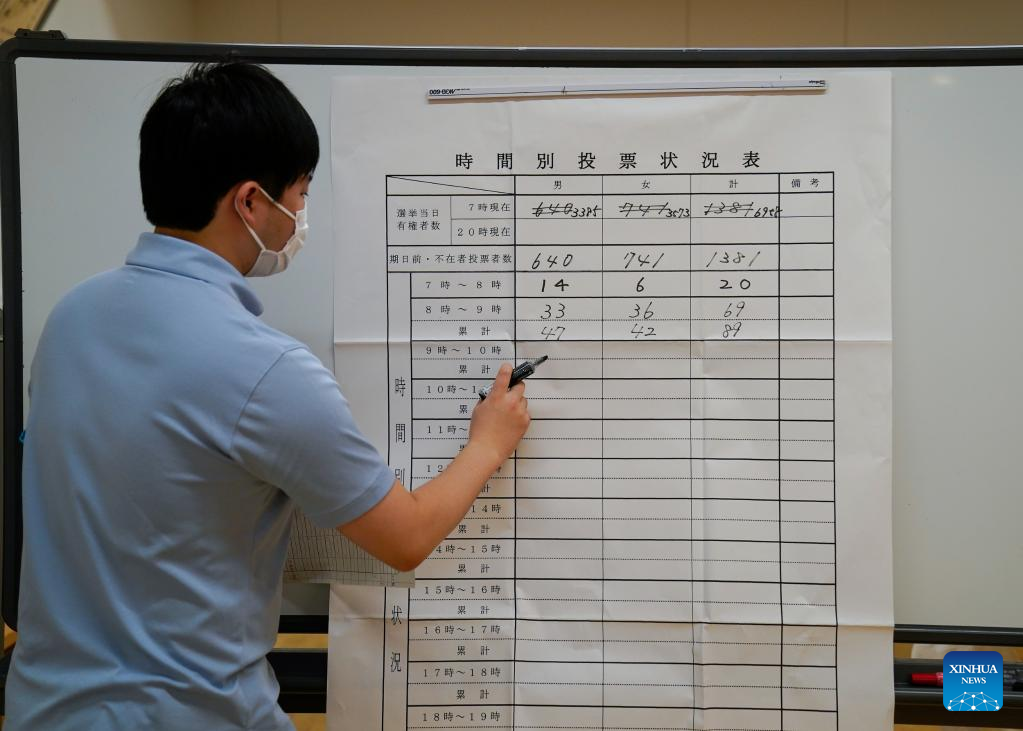 時間別投票状況表
男 女 計 備考
選挙当日有権者数 7時現在 640 3385 741 3573 1381 6958
20時現在
期日前・不在者投票者数 640 741 1381
7時～8時 14 6 20
8時～9時 33 36 69
累計 47 42 89
9時～10時
累計
10時～1
累
11時～
12 時
計
14時
累計
4時～15時
累計
15時～16時
累計
16時～17時
累計
17時～18時
累計
18時～19時
時間別
状況
XINHUA
NEWS